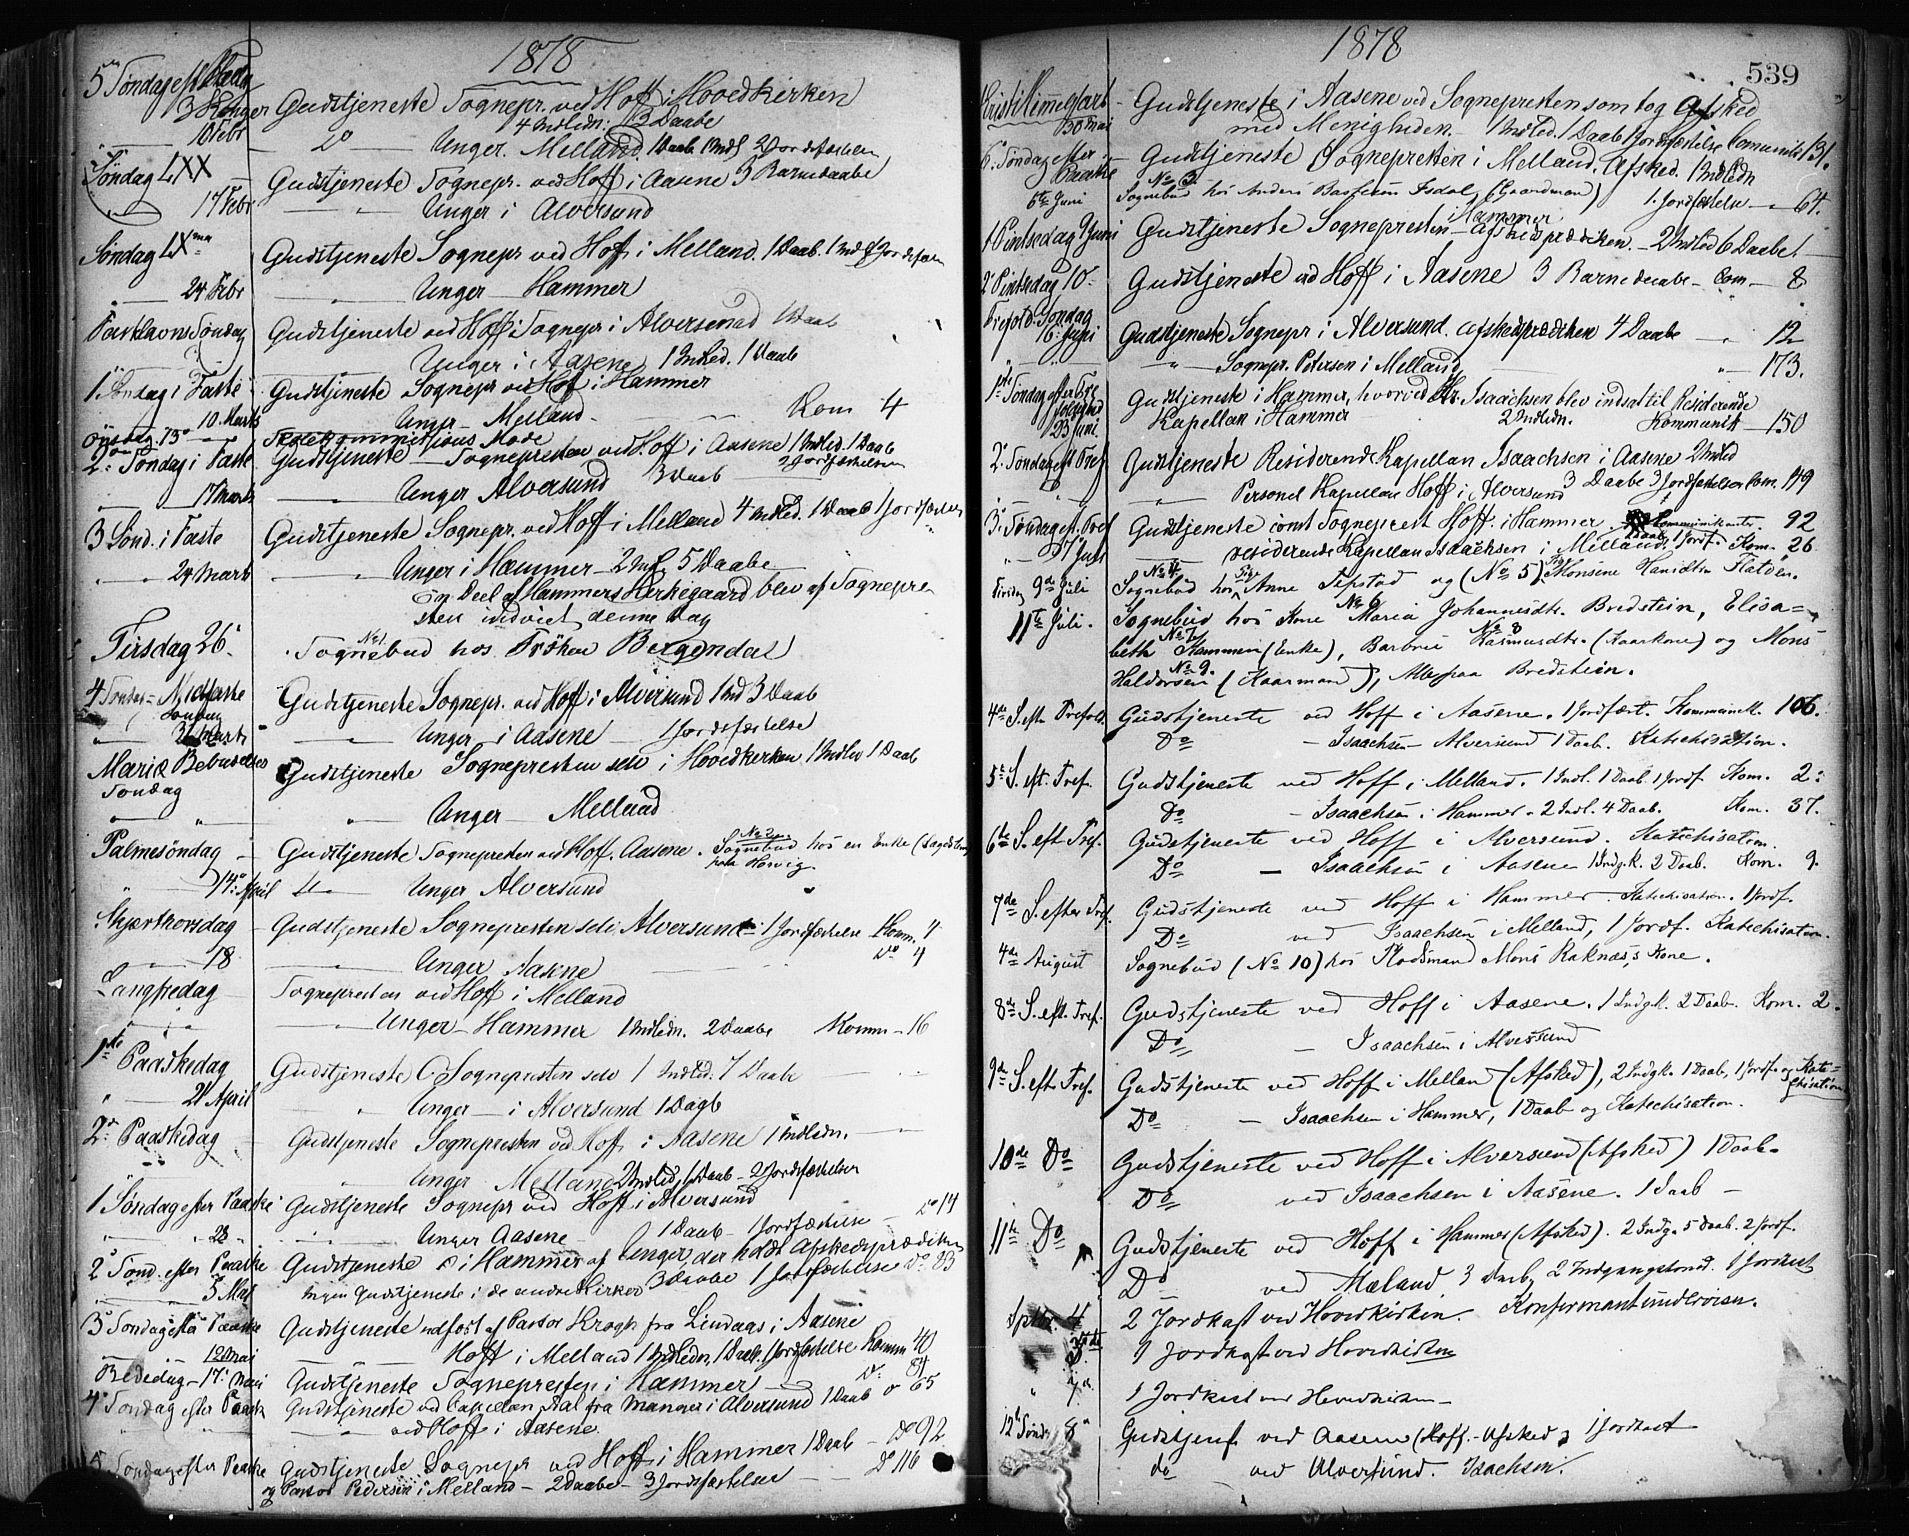 1878
5 Søndag eft.
3 Konger Gudstjeneste Sognepr. ved Hoff i Hovedkirken
4 Indledn. 3 Daabe
10 Febr Do Unger. Melland. 1 Daab 1 Indl 2 Jordfæstelser
Søndag LXX Gudstjeneste Sognepr. ved Hoff i Aasene 3 Barnedaabe
17 Febr Unger i Alversund
Søndag LX Gudstjeneste Sognepr ved Hoff i Melland. 1 Daab. 1 Indl 1 Jordfæst
24 Febr Unger Hammer
Fastelavns Søndag Gudstjeneste ved Hoff Sognepr i Alversund 1 Daab
Unger i Aasene 1 Indled. 1 Daab
1. Søndag i Faste Gudstjeneste Sognepr ved Hoff i Hammer
10. Marts Unger Melland Kom 4
Onsdag 13 Møde
2. Søndag i Faste Gudstjeneste Sognepresten ved Hoff i Aasene 1 Indled. 1 Daab
2 Jordfæstelser
17 Marts Unger Alversund 3 Daab
3 Sønd. i Faste Gudstjeneste Sognepr. ved Hoff i Melland 4 Indled. 1 Daab 1 Jordfæstelse
24 Marts Unger i Hammer 2 Indl 5 Daabe
En Deel af Hammers Kirkegaard blev af Sognepre
sten indviet denne Dag
Tirsdag 26. No 1. Sognebud hos Frøken Bergendal
4 Søndag = Midfaste Gudstjeneste Sognepr. ved Hoff i Alversund 1 Ind 3 Daab
Søndag
31 Marts Unger i Aasene 1 Jordfæstelse
Mariæ Bebudelses Gudstjeneste Sognepresten selv i Hovedkirken 1 Indled 1 Daab
Søndag
Unger Melland
Palmesøndag Gudstjeneste Sognepresten ved Hoff. Aasene. No 2 Sognebud hos en Enke
paa Hosvig
14 April Unger Alversund
Skjærthorsdag Gudstjeneste Sognepresten selv. Alversund 1 Jordfæstelse Komm. 4
18 Unger Aasene Do 4
Langfredag Sognepresten ved Hoff i Melland
Unger Hammer 1 Indledn. 2 Daabe Komm 16
1ste Paaskedag Gudstjeneste Sognepresten selv 1 Indled. 7 Daabe
21 April Unger i Alversund 1 Daab
2. Paaskedag Gudstjeneste Sognepresten ved Hoff i Aasene 1 Indledn.
Unger Melland 2 Indled. 1 Daab 2 Jordfæstelser
1 Søndag efter Paaske Gudstjeneste Sognepr ved Hoff i Alversund Do 14
28 Unger Aasene 1 Daab 1 Jordfæstelse
2 Sønd. efter Paaske Gudstjeneste i Hammer af Unger, der holdt Afskedsprædiken
5 Mai Ingen Gudstjeneste i de andre Kirker 3 Daabe 1 Jordfæstelse Do 83
3 Søndag eft. Paaske Gudstjeneste udført af Pastor Krogh fra Lindaas i Aasene
12 Mai Hoff i Melland 1 Indledn. 1 Daab. 1 Jordfæstelse Komm 40
Bededag 17 Mai Gudstjeneste Sognepresten i Hammer Do 84
4 Søndag efter Paaske Gudstjeneste ved Capellan Aal fra Manger i Alversund 1 Daab 65
ved Hoff i Aasene Do 92
5 Søndag efter Paaske Gudstjeneste Sognepr ved Hoff i Hammer 1 Daab Do 116
og Pastor Pedersen i Melland 2 Daabe 3 Jordfæstelser
1878
539
Kristi Himmelfart Gudstjeneste i Aasene ved Sognepresten som tog Afsked
30 Mai med Menigheden. 1 Indled. 1 Daab 1 Jordfæstelse Comunik 131.
6. Søndag efter Paaske Gudstjeneste Sognepresten i Melland. Afsked. 1 Indledn
6te Juni No 3 Sognebud hos Anders Isdal, (Gaardmand) 1. Jordfæstelse 64.
1 Pintsedag 9 Juni Gudstjeneste Sognepresten i Hammer Afskedsprædiken. 2 Indled 6 Daabe
2 Pintsedag 10 Gudstjeneste ved Hoff i Aasene 3 Barnedaabe Com 8
Trefold. Søndag
16. Juni Gudstjeneste Sognepr i Alversund. Afskedsprædiken 4 Daabe 12
Sognepr. Petersen i Melland 173.
1ste Søndag efter Trefoldighed Gudstjeneste i Hammer, hvorved Hr. Isaachsen blev indsat til Residerende
23 Juni. Kapellan i Hammer 2 Indledn. Kommunik 150
2. Søndag eft Tref Gudstjeneste Residerende Kapellan Isaachsen i Aasene 2 Indled
Personel Kapellan Hoff i Alversund 3 Daabe 3 Jordfæstelser Com. 49
3. Søndag eft. Tref Gudstjeneste const Sogneprest Hoff. i Hammer. Kommunikanter. 92
7 Juli residerende Kapellan Isaachsen i Melland. 1 Daab 1 Jordf. Kom. 26
Tirsdag 9de Juli No 4 Sognebud hos Pige Anne Tepstad og (No 5) Pig Monsine Flatøen.
11te Juli. Sognebud hos Kone No 6 Maria Johannesdt. Bredstein, Elisa=
beth No 7 Hammer (Enke), Barbrue No 8 Rasmusdtr. (Kaarkone) og Mons
Haldorsen No 9. (Kaarmand), Alle paa Bredstein.
4de S. eft. Trefold. Gudstjeneste ved Hoff i Aasene. 1 Jordfæst. Kommunik. 106.
Do Isaachsen Alversund 1 Daab. Katechisation.
5te S. eft. Tref. Gudstjeneste ved Hoff i Melland. 1 Indl. 1 Daab. 1 Jordf. Kom. 2.
Do Isaachsen i Hammer. 2 Indl. 4 Daab. Kom. 37.
6te S. eft Tref. Gudstjeneste ved Hoff i Alversund. Katechisation.
Do Isaachsen i Aasene 1 Indg.k. 2 Daab. Kom. 9.
7de S. efter Tref. Gudstjeneste ved Hoff i Hammer. Katechisation. 1 Jordf.
Do ved Isaachsen i Melland, 1 Jordf. Katechisation.
4de August Sognebud (No 10) hos Pladsmand Mons Raknæs's Kone.
8de S. eft. Tref. Gudstjeneste ved Hoff i Aasene. 1 Indg.k. 2 Daab. Kom. 2.
Do Isaachsen i Alversund
9de S. eft. Tref. Gudstjeneste ved Hoff i Melland (Afsked), 2 Indgk. 1 Daab, 1 Jordf. og Kate=
chisation
Do Isaachsen i Hammer, 1 Daab og Katechisation.
10de Do Gudstjeneste ved Hoff i Alversund (Afsked) 1 Daab.
Do ved Isaachsen i Aasene. 1 Daab
11te Do Gudstjeneste ved Hoff i Hammer (Afsked). 2 Indg. 5 Daab. 2 Jordf.
Do ved Mæland. 3 Daab, 2 Indgangskoner. 1 Jordkast
Sptbr. 4 2 Jordkast ved Hovedkirken. Konfirmantundervisn.
5te 1 Jordkast ved Hovedkirken
7de 1 Jordkast ved Hovedkirken
12te Sønd. 8 Gudstjen. ved Aasene (Hoff. Afsked) 1 Jordkast
do ved Alversund. Isachsen.